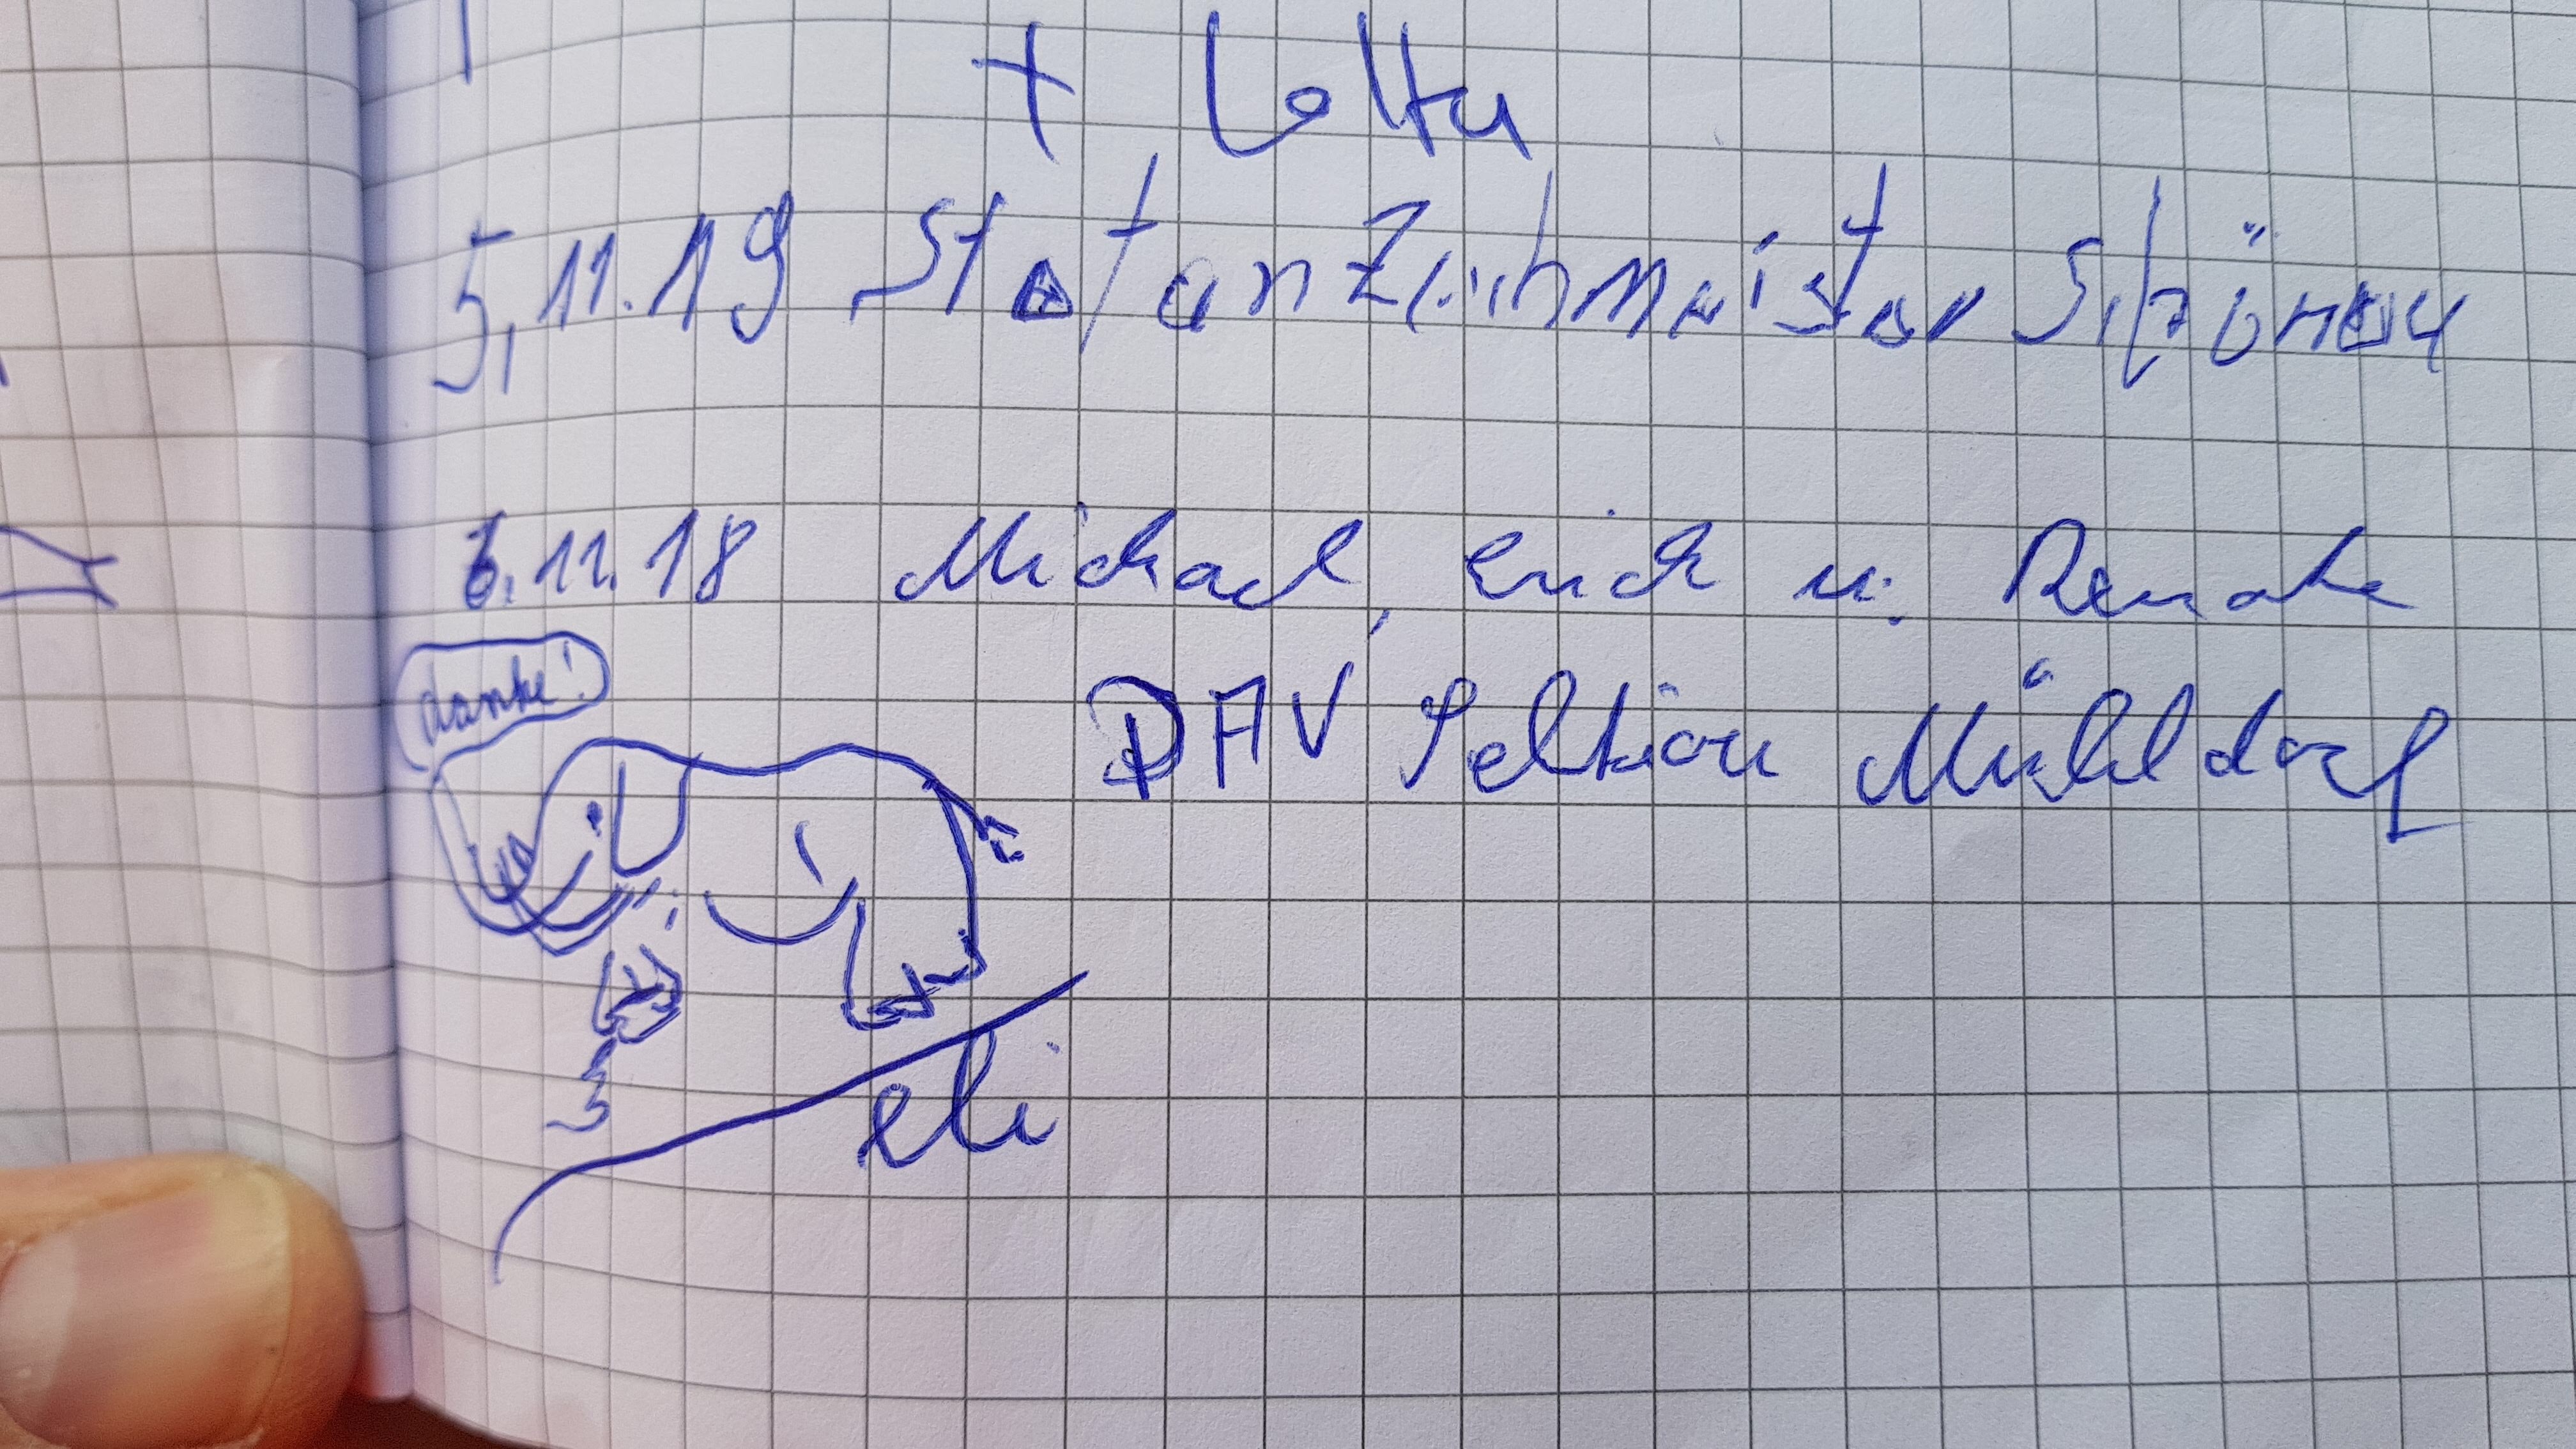 + Lotta
5.11.19 Stefan Zeichmeister
6.11.18 Michael, Erich u. Renate
danke!
DAV Sektion Mühldorf
eli